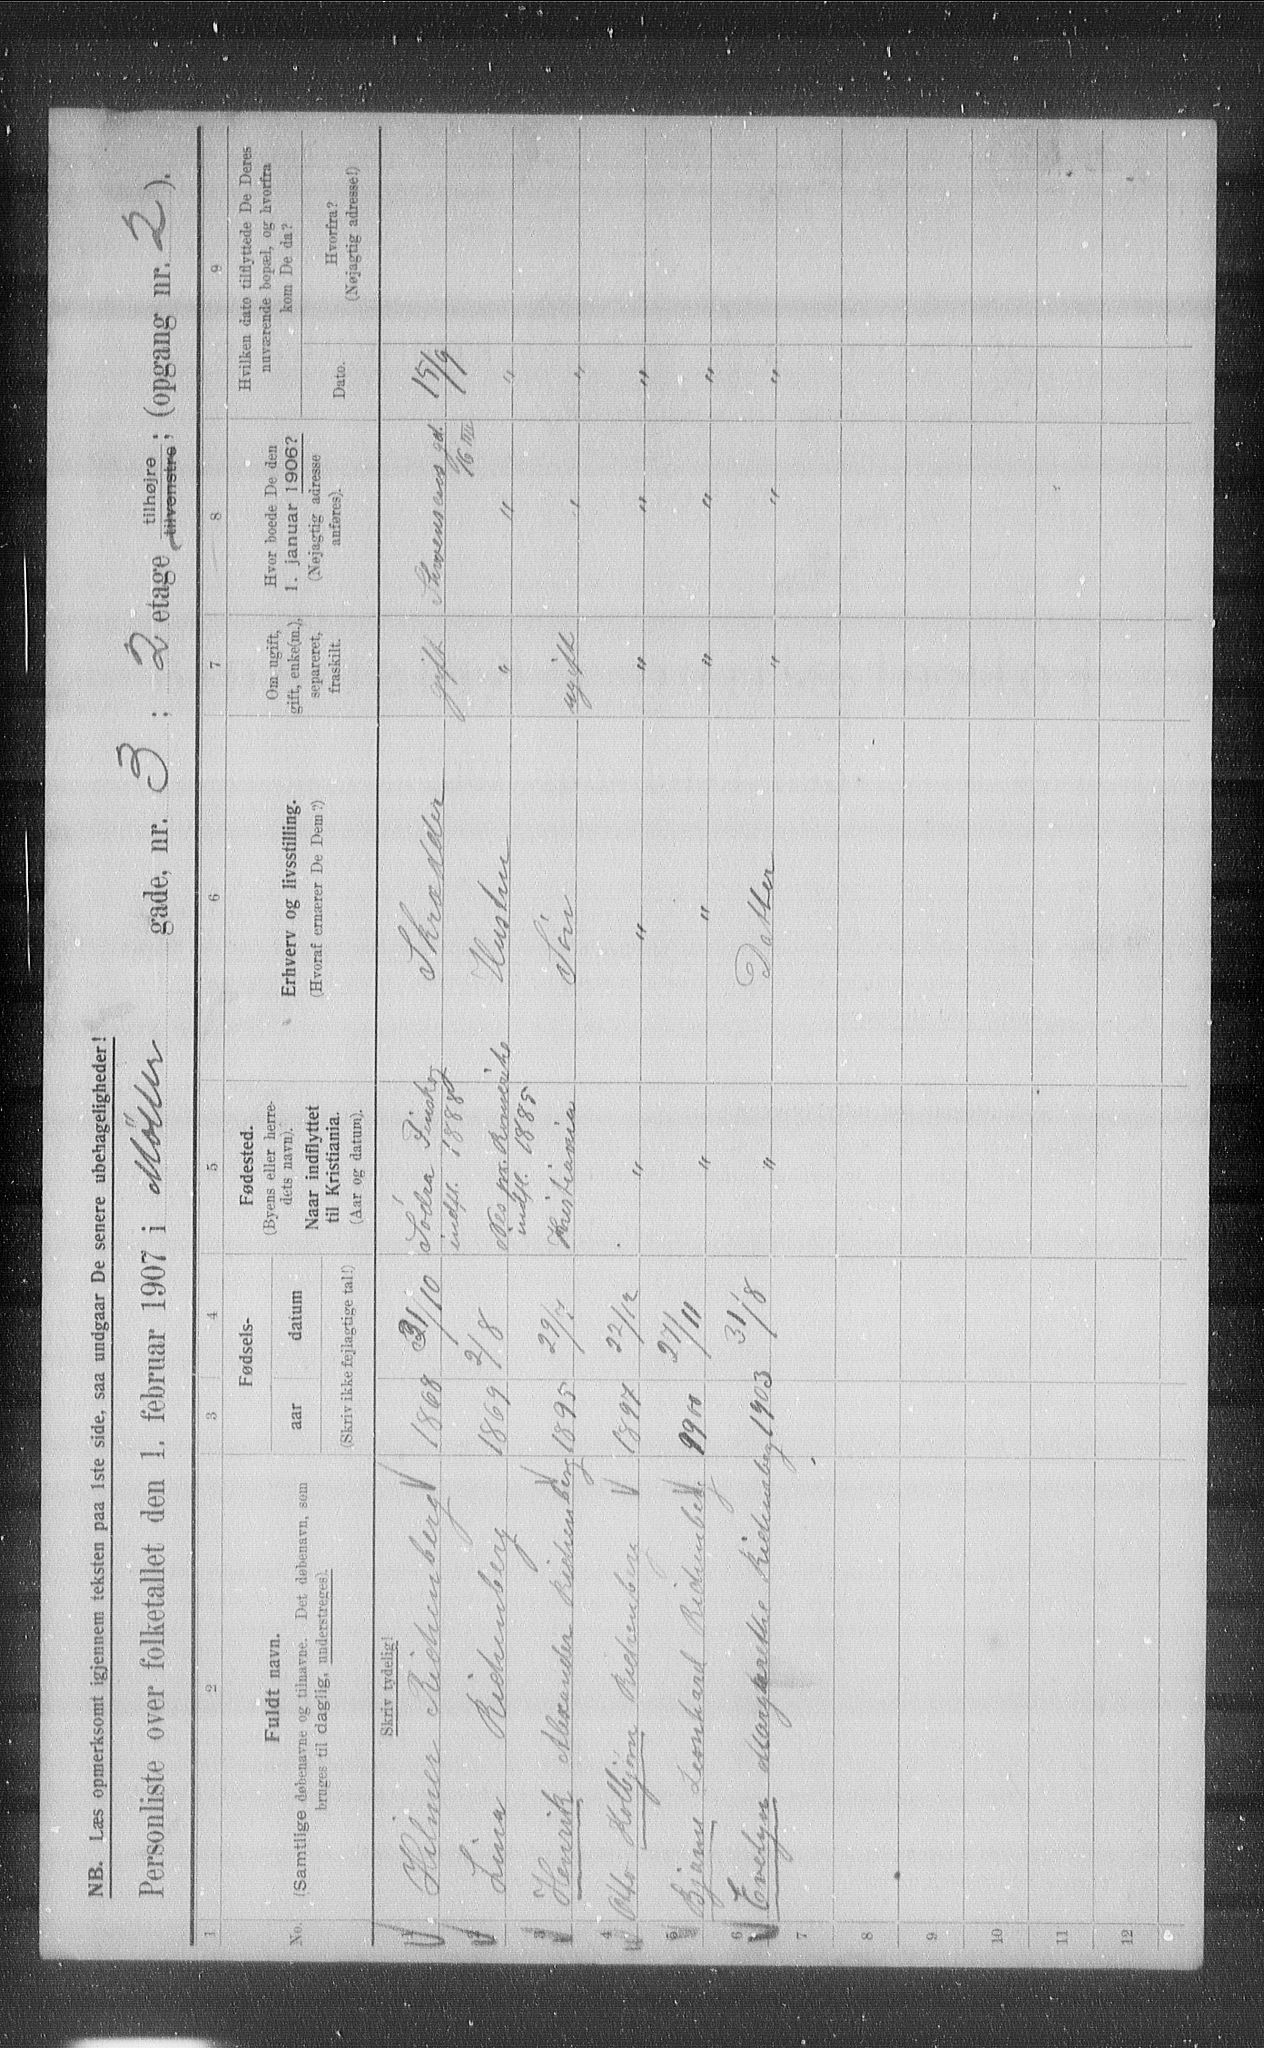 NB. Læs opmerksomt igjennem teksten paa 1ste side, saa undgaar De senere ubehageligheder!
Personliste over folketallet den 1. februar 1907 i Möller gade, nr. 3; 2 etage tilhøjre tilvenstre; (opgang nr. 2).
1 2 3 4 5 6 7 8 9
No.
Fuldt navn.
(Samtlige døbenavne og tilnavne. Det døbenavn, som
bruges til daglig, understreges).
Fødsels-
aar datum
(Skriv ikke fejlagtige tal!)
Fødested.
(Byens eller herre-
dets navn).
Naar indflyttet
til Kristiania.
(Aar og datum).
Erhverv og livsstilling.
(Hvoraf ernærer De Dem?)
Om ugift,
gift, enke(m.),
separeret,
fraskilt.
Hvor boede De den
1. januar 1906?
(Nøjagtig adresse
anføres).
Hvilken dato tilflyttede De Deres
nuværende bopæl, og hvorfra
kom De da?
Dato.
Hvorfra?
(Nøjagtig adresse!)
Skriv tydelig!
1 Hilmer Richenberg 1868 31/10 Södra Finskog Skrædder gift gd. 15/9
indfl. 1888 16 III
2 Lina Richenberg 1869 2/8 Nes Romerike Hustru " " "
indfl. 1885
3 Henrik Alexander Richenberg 1895 29/7 Kristiania Sön ugift " "
4 Otto Kolbjörn Richenberg 1897 22/12 " " " " "
5 Bjarne Leonhard Richenberg 1900 27/11 " " " " "
6 Evelyn Margarethe Richenberg 1903 31/8 " Datter " " "
7
8
9
10
11
12